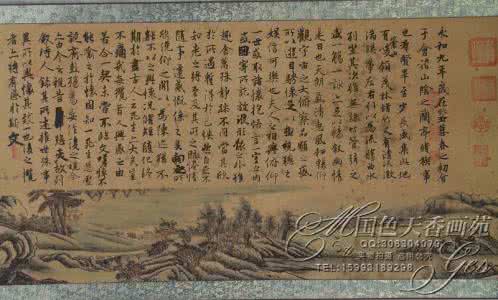 永和九年歲在癸丑暮春之初會
于會稽山陰之蘭亭脩禊事
也羣賢畢至少長咸集此地
有崇山峻領茂林脩竹又有清流激
湍暎帶左右引以為流觴曲水
列坐其次雖無絲竹管弦之
盛一觴一詠亦足以暢敘幽情
是日也天朗氣清惠風和暢仰
觀宇宙之大俯察品類之盛
所以遊目騁懷足以極視聽之
娛信可樂也夫人之相與俯仰
一世或取諸懷抱悟言一室之內
或因寄所託放浪形骸之外雖
趣舍萬殊靜躁不同當其欣
於所遇蹔得於己怏然自足不
知老之將至及其所之既惓情
隨事遷感慨係之矣向之所
欣俛仰之閒以為陳迹猶不
能不以之興懷況脩短隨化終
期於盡古人云死生亦大矣豈
不痛哉每攬昔人興感之由
若合一契未嘗不臨文嗟悼不
能喻之於懷固知一死生為虛
誕齊彭殤為妄作後之視今
亦由今之視昔悲夫故列
敘時人錄其所述雖世殊事
異所以興懷其致一也後之攬
者亦將有感於斯文
国色天香画苑
QQ:308304079
实物拍摄
TEL:15993189298